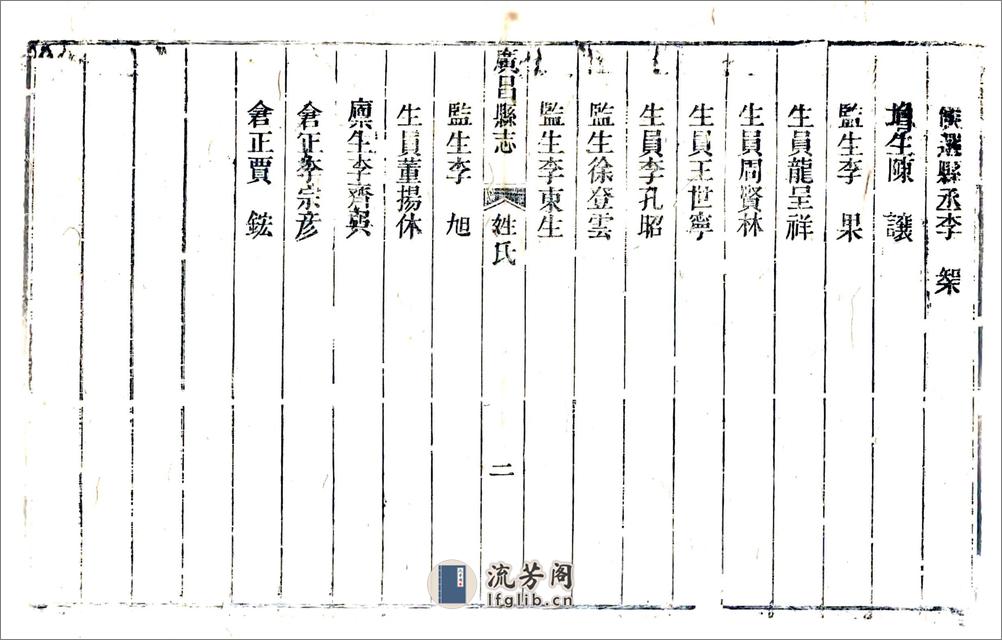 候選縣丞李 榘
增生陳 讓
監生李 果
生員龍呈祥
生員周賢林
生員王世寧
生員李孔昭
監生徐登雲
監生李東生
廣昌縣志 姓氏 二
監生李 旭
生員董揚休
廩生李齊巽
倉正李宗彦
倉正賈 鋐
流芳阁
lfglib.cn